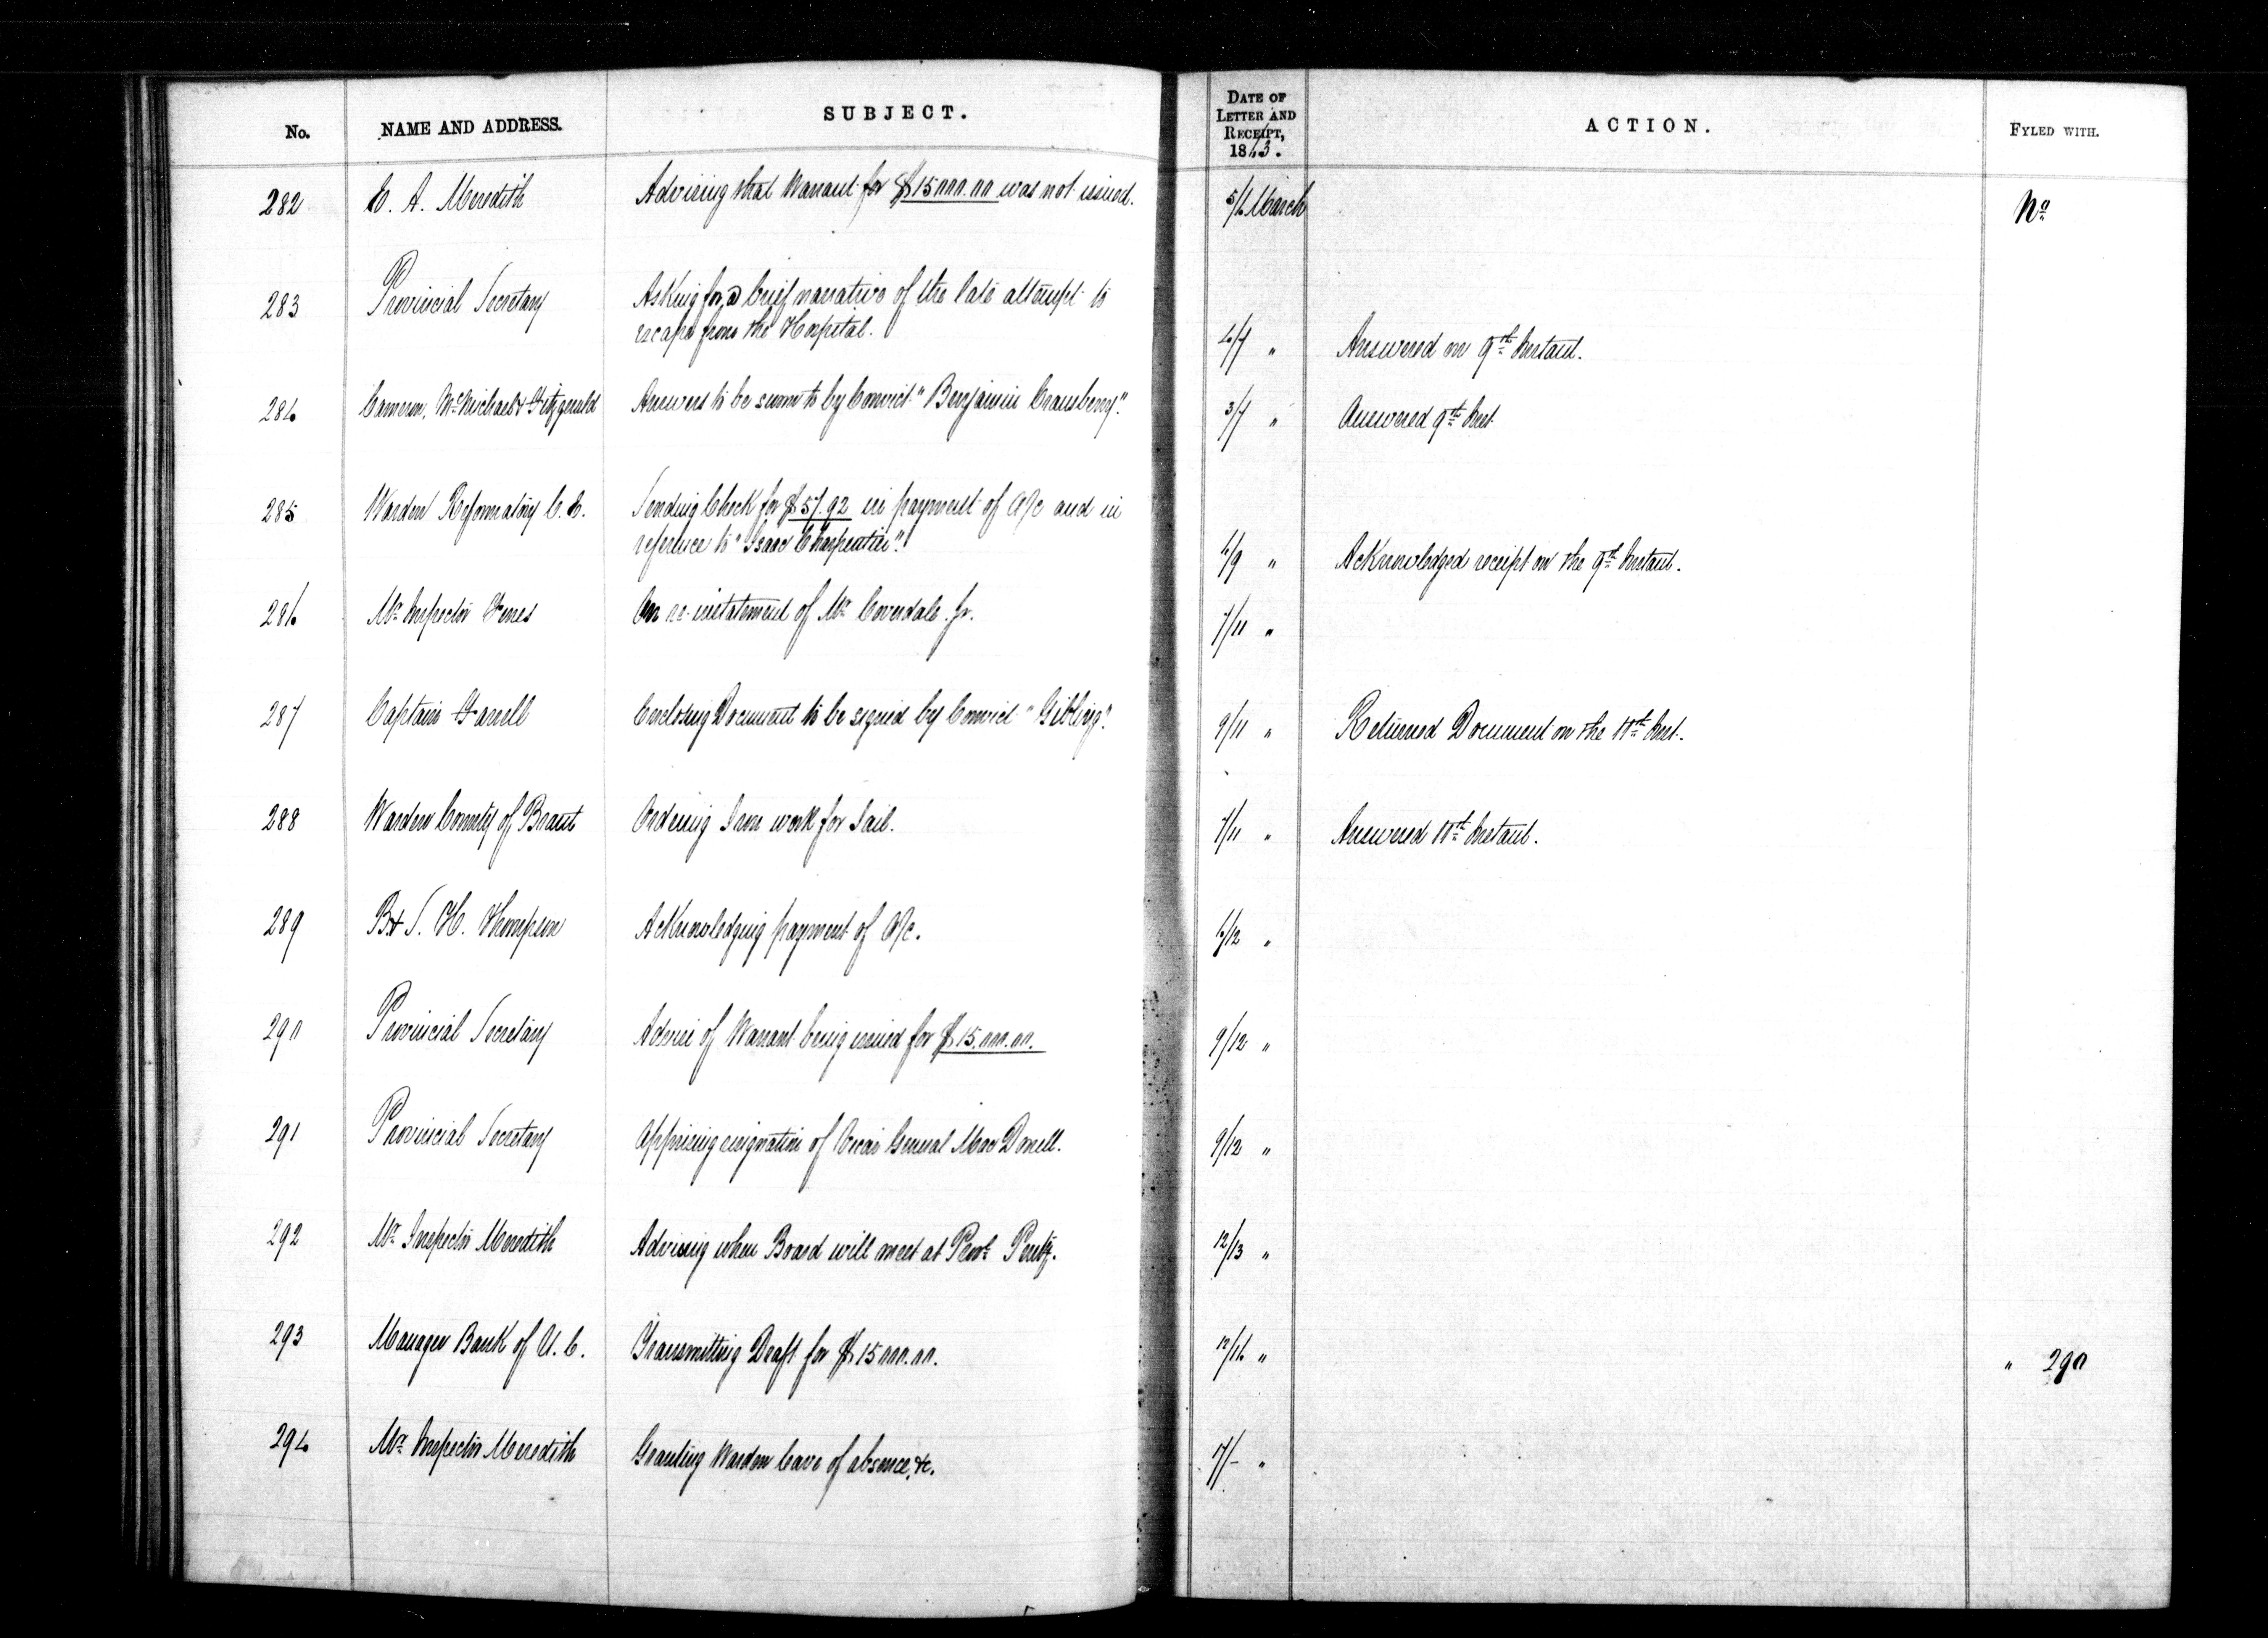 No. NAME AND ADDRESS. SUBJECT. DATE OF LETTER AND RECEIPT, 1863. ACTION. FYLED WITH.
282 E. A. Meredith Advising that Warrant for $15000.00 was not issued. 5/6 March No
283 Provincial Secretary Asking for a brief narrative of the late attempt to
escape from the Hospital. 6/7 " Answered on 9th Instant.
284 Cameron, McMichael & Fitzgerald Answers to be sworn to by Convict "Benjamin Cransberry". 3/7 " Answered 9th Inst
285 Warden Reformatory C. E. Sending Check for $57.92 in payment of A/c and in
reference to "Isaac Charpentier". 6/9 " Acknowledged receipt on the 9th Instant.
286 Mr Inspector Ferres On re-instatement of Mr Coverdale Jr. 7/11 "
287 Captain Farrell Enclosing Document to be signed by Convict "Gibling". 9/11 " Returned Document on the 11th Inst.
288 Warden County of Brant Ordering Iron work for Jail. 7/11 " Answered 11th Instant.
289 B & S. H. Thompson Acknowledging payment of A/c. 6/12 "
290 Provincial Secretary Advice of Warrant being issued for $15.000.00. 9/12 "
291 Provincial Secretary Apprising resignation of Vicar General MacDonell. 9/12 "
292 Mr Inspector Meredith Advising when Board will meet at Provl Penty. 12/13 "
293 Manager Bank of U. C. Transmitting Draft for $15000.00. 12/16 " " 290
294 Mr Inspector Meredith Granting Warden leave of absence, &c. 17/- "